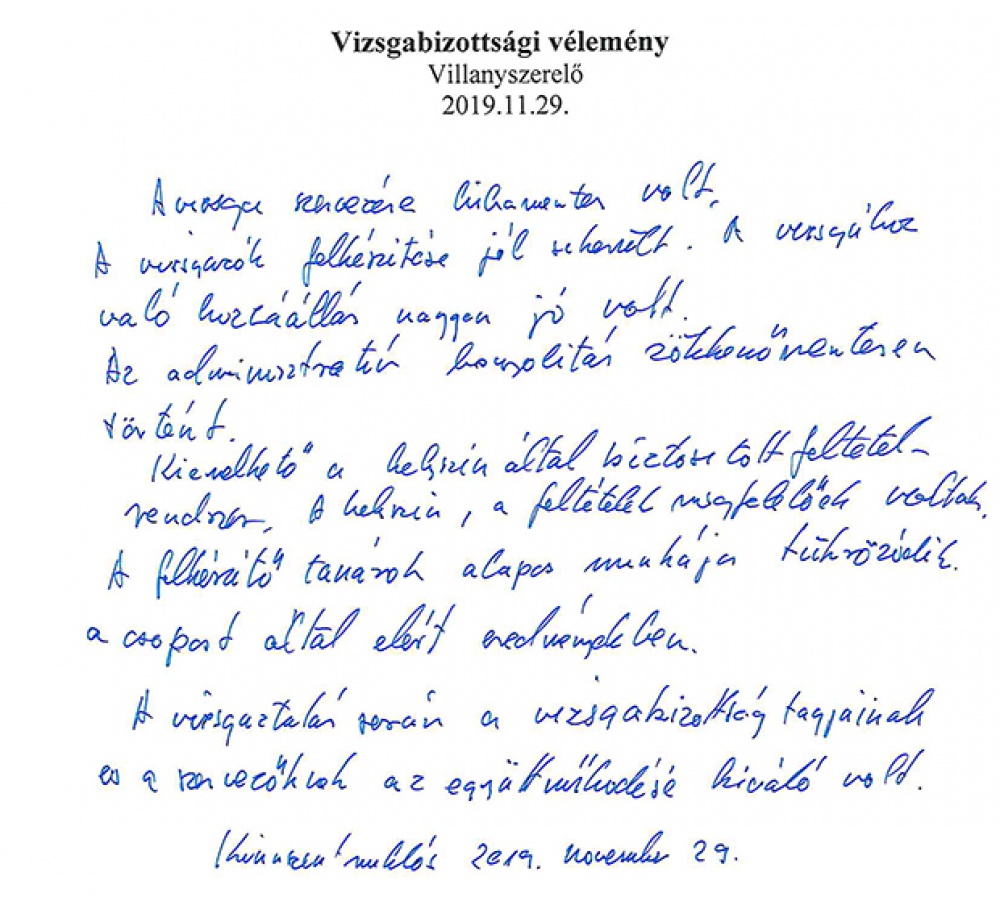 Vizsgabizottsági vélemény
Villanyszerelő
2019.11.29.
A vizsga szervezése hibamentes volt.
A vizsgázók felkészítése jól sikerült. A vizsgához
való hozzáállás nagyon jó volt.
Az adminisztratív lebonyolítás zökkenőmentesen
történt.
Kiemelhető a helyszín által biztosított feltétel-
rendszer. A helyszín, a feltételek megfelelőek voltak.
A felkészítő tanárok alapos munkája tükröződik
a csoport által elért eredményekben.
A vizsgáztatás során a vizsgabizottság tagjainak
és a szervezőknek az együttműködése kiváló volt.
Kunszentmiklós 2019. november 29.